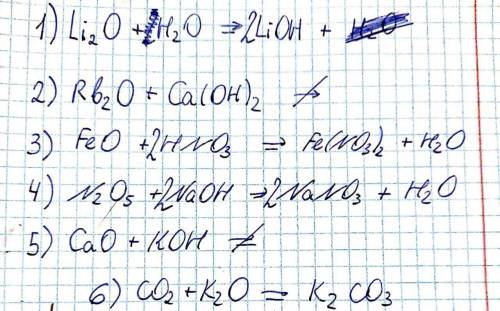 1) Li₂O + H₂O → 2LiOH +
2) Rb₂O + Ca(OH)₂ ↛
3) FeO + 2HNO₃ = Fe(NO₃)₂ + H₂O
4) N₂O₅ + 2NaOH → 2NaNO₃ + H₂O
5) CaO + KOH ≠
6) CO₂ + K₂O = K₂CO₃